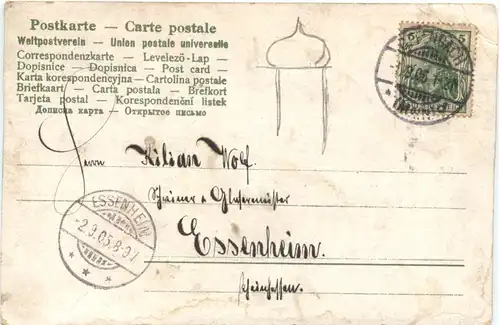 Postkarte — Carte postale
Weltpostverein — Union postale universelle
Correspondenzkarte — Levelező-Lap —
Dopisnice — Dopisnica — Post card —
Karta korespondencyjna — Cartolina postale
Briefkaart — Carta postala — Brefkort
Tarjeta postal — Korespondenční lístek
Дописна карта — Открытое письмо
5
Herrn Kilian Wolf.
Schreiner & Glasermeister
Essenheim.
Rheinhessen.
ESSENHEIM
-2.9.05.8-9V